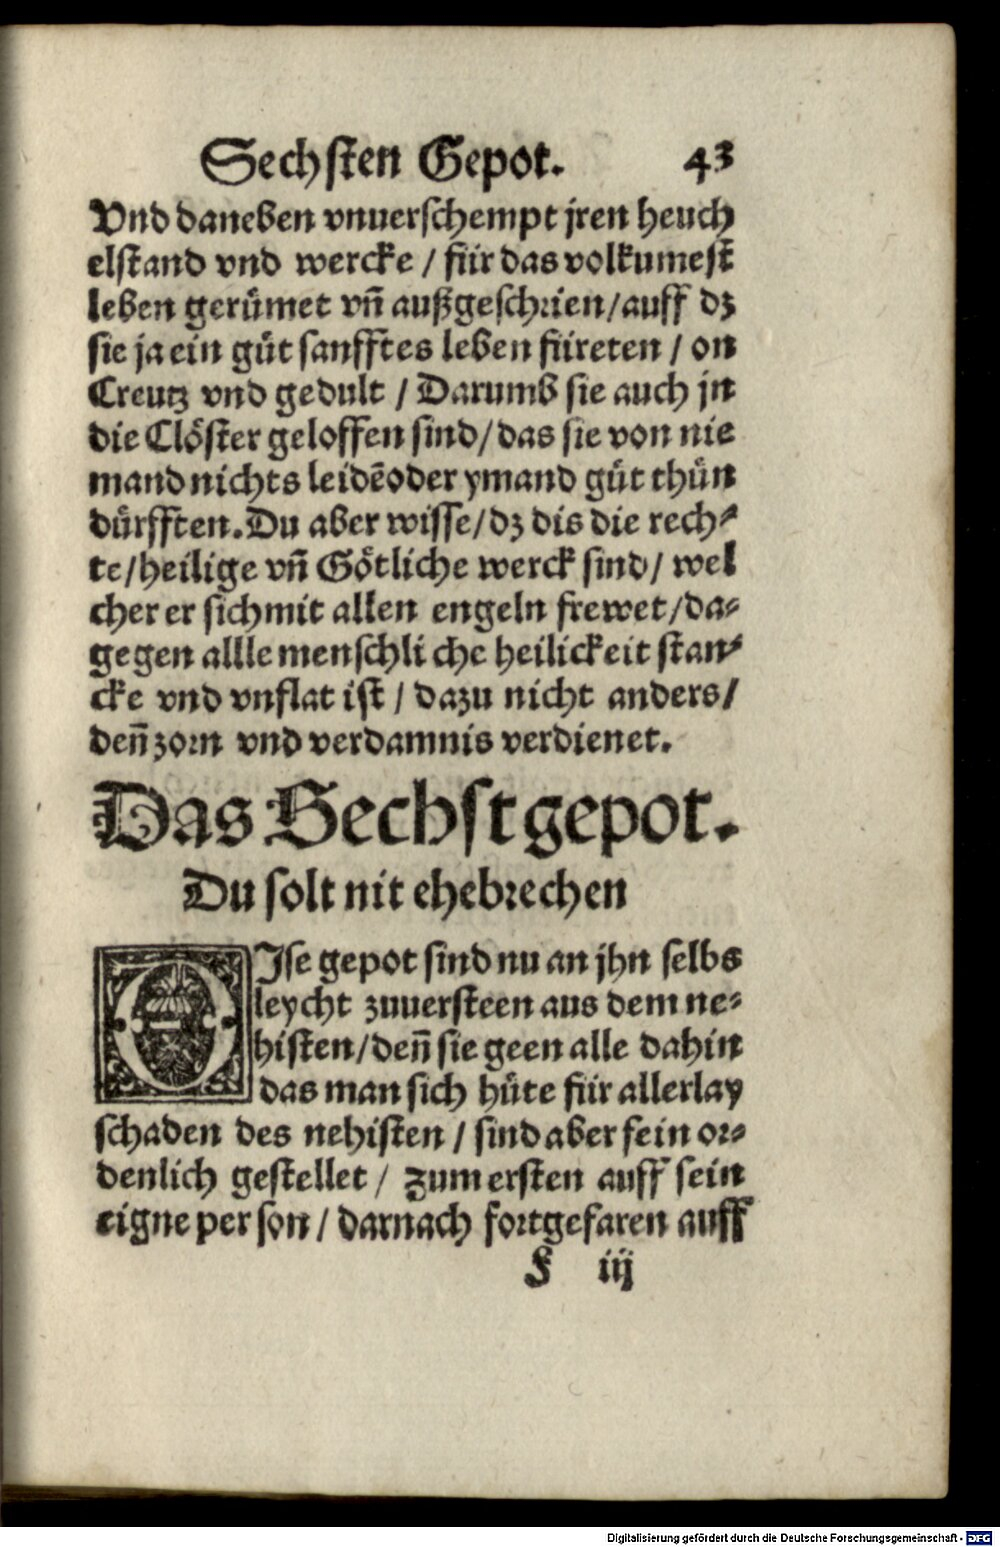 Sechsten Gepot. 43
Vnd daneben vnuerschempt jren heuch
elstand vnd wercke / für das volkumest
leben gerůmet vñ außgeschrien/auff dz
sie ja ein gůt sanfftes leben füreten / on
Creutz vnd gedult / Darumb sie auch jn
die Clöster geloffen sind/das sie von nie
mand nichts leidẽ oder ymand gůt thůn
dürfften. Du aber wisse/dz dis die rech⸗
te/heilige vñ Götliche werck sind/ wel
cher er sich mit allen engeln frewet/da⸗
gegen allle menschli che heilickeit stan⸗
cke vnd vnflat ist / dazu nicht anders/
deñ zorn vnd verdamnis verdienet.
Das Sechst gepot.
Du solt nit ehebrechen
DIse gepot sind nu an jhn selbs
leycht zuuersteen aus dem ne⸗
histen/deñ sie geen alle dahin
das man sich hüte für allerlay
schaden des nehisten / sind aber fein or⸗
denlich gestellet / zum ersten auff sein
eigne per son / darnach fortgefaren auff
F iij
Digitalisierung gefördert durch die Deutsche Forschungsgemeinschaft - DFG